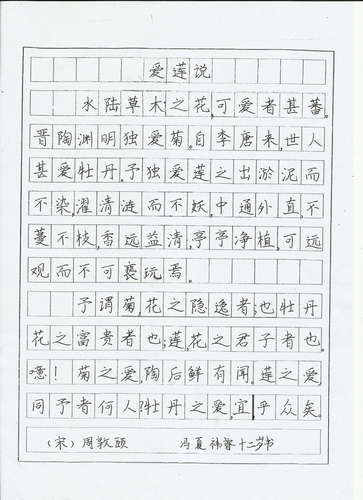 爱莲说
水陆草木之花,可爱者甚蕃。
晋陶渊明独爱菊。自李唐来,世人
甚爱牡丹。予独爱莲之出淤泥而
不染,濯清涟而不妖。中通外直,不
蔓不枝,香远益清,亭亭净植,可远
观而不可亵玩焉。
予谓菊,花之隐逸者;也牡丹
花之富贵者也;莲,花之君子者也。
噫!菊之爱,陶后鲜有闻。莲之爱
同予者何人?牡丹之爱,宜乎众矣。
(宋)周敦颐 冯夏祎 十二岁书